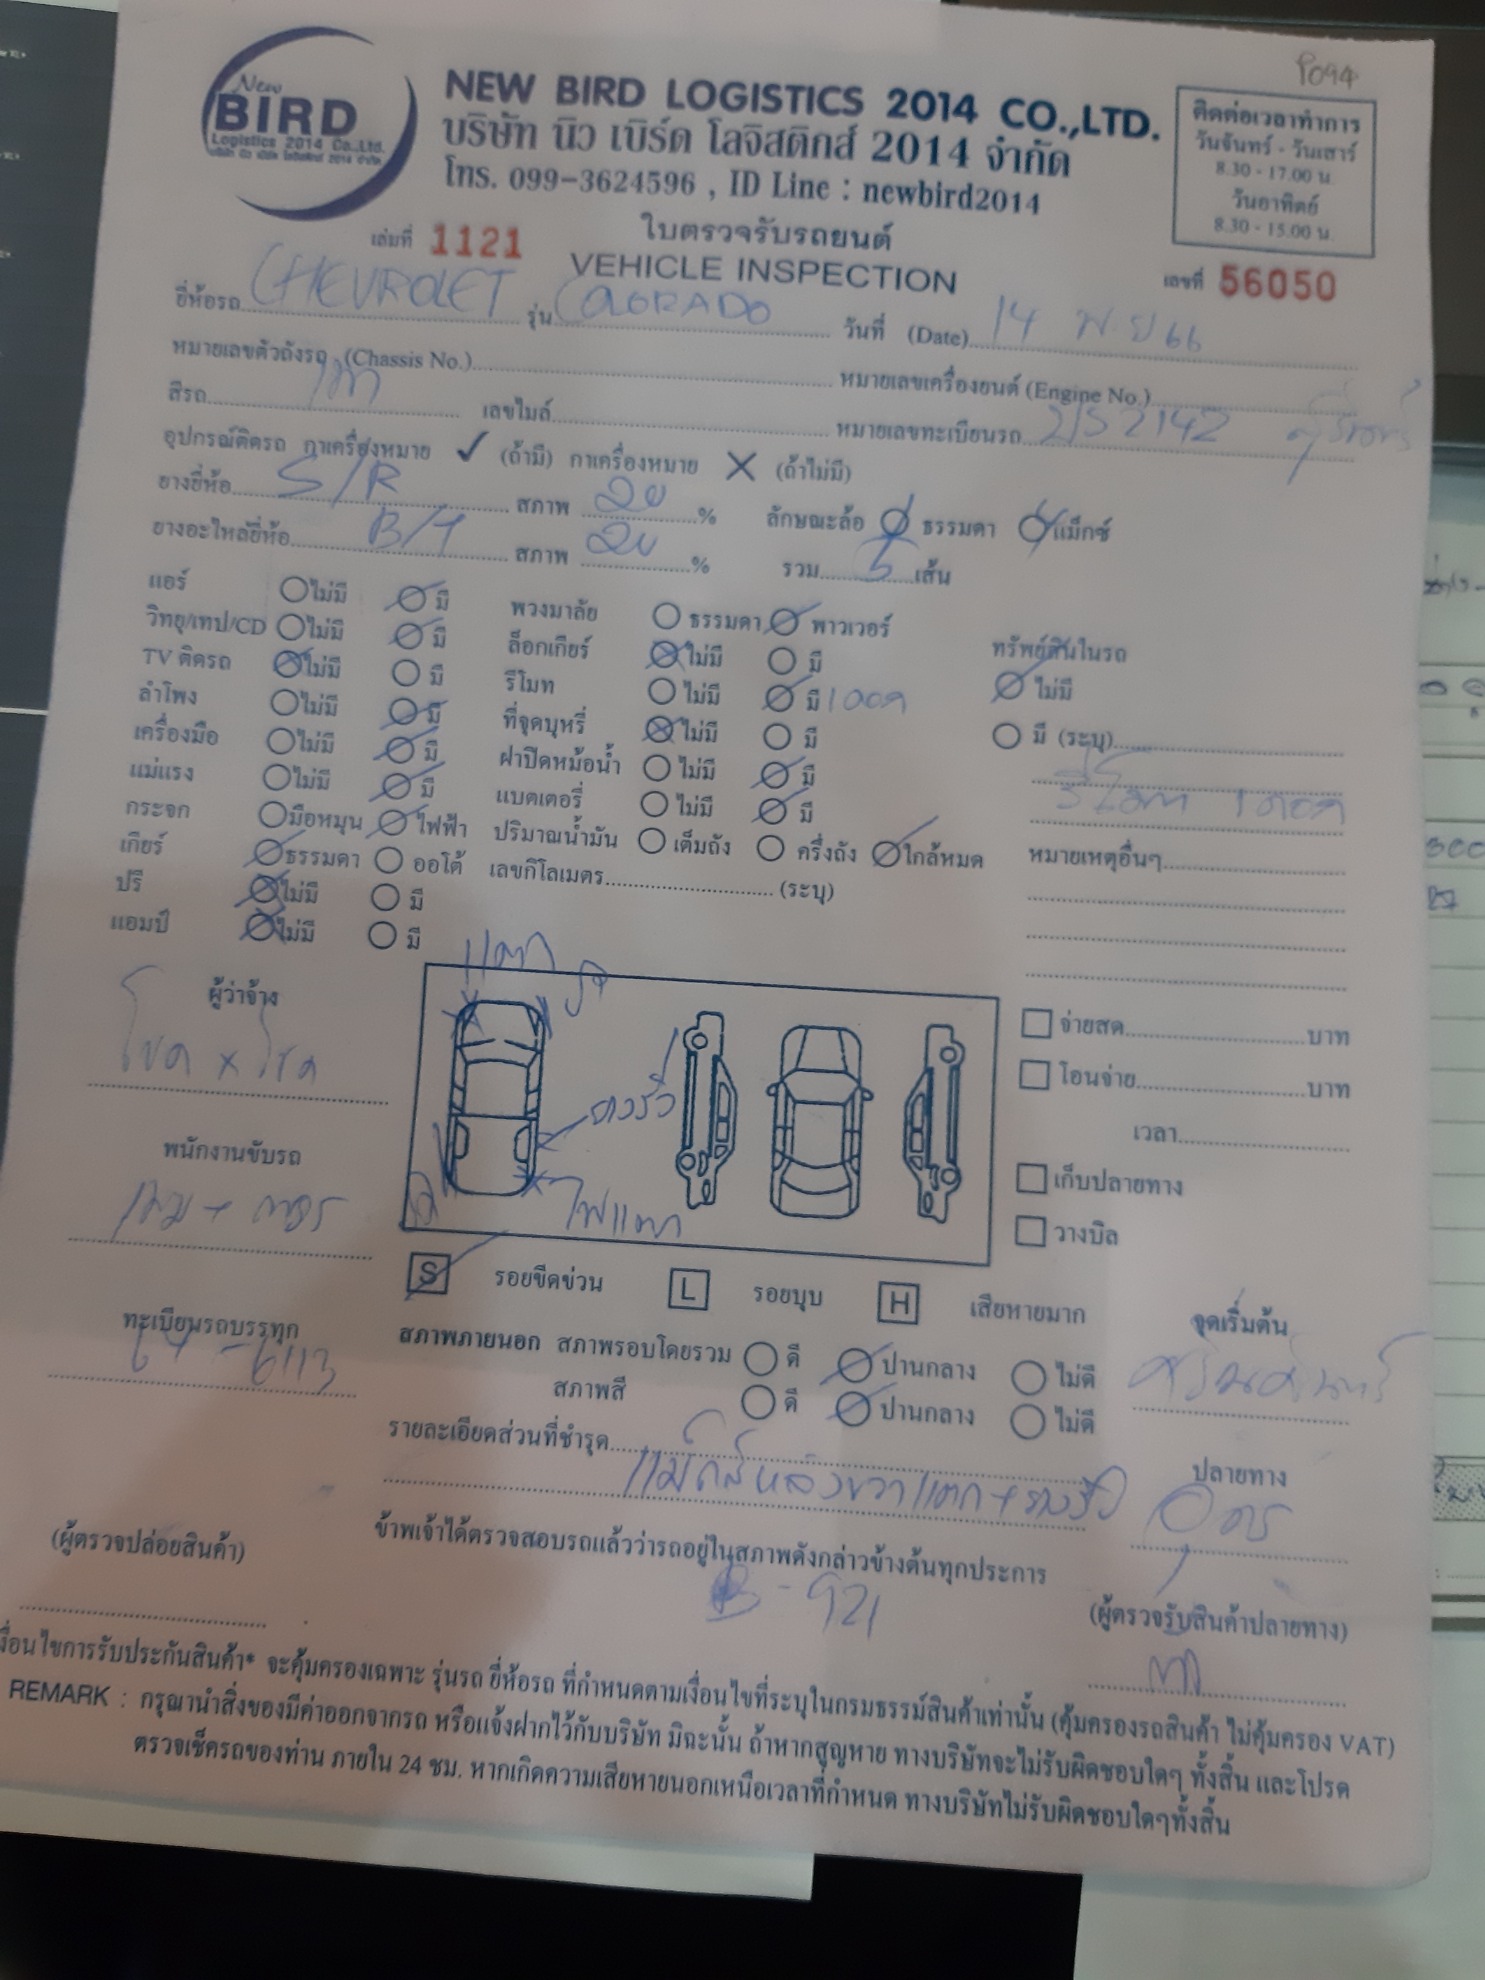 ro94
New
BIRD
Logistics 2014 Co.,Ltd.
บริษัท นิว เบิร์ด โลจิสติกส์ 2014 จำกัด
NEW BIRD LOGISTICS 2014 CO.,LTD.
บริษัท นิว เบิร์ด โลจิสติกส์ 2014 จำกัด
โทร. 099-3624596 , ID Line : newbird2014
ติดต่อเวลาทำการ
วันจันทร์ - วันเสาร์
8.30 - 17.00 น.
วันอาทิตย์
8.30 - 15.00 น.
เล่มที่ 1121
ใบตรวจรับรถยนต์
VEHICLE INSPECTION
เลขที่ 56050
ยี่ห้อรถ CHEVROLET รุ่น COLORADO วันที่ (Date) 14 พ.ย 66
หมายเลขตัวถังรถ (Chassis No.) หมายเลขเครื่องยนต์ (Engine No.)
สีรถ เทา เลขไมล์ หมายเลขทะเบียนรถ 2142 สุรินทร์
อุปกรณ์ติดรถ กาเครื่องหมาย ✓ (ถ้ามี) กาเครื่องหมาย ✗ (ถ้าไม่มี)
ยางยี่ห้อ S/R สภาพ 20 % ลักษณะล้อ ธรรมดา แม็กซ์
ยางอะไหล่ยี่ห้อ B/T สภาพ 20 % รวม 5 เส้น
แอร์ ไม่มี มี พวงมาลัย ธรรมดา พาวเวอร์
วิทยุ/เทป/CD ไม่มี มี ล็อกเกียร์ ไม่มี มี ทรัพย์สินในรถ
TV ติดรถ ไม่มี มี รีโมท ไม่มี มี 1 ดอก ไม่มี
ลำโพง ไม่มี มี ที่จุดบุหรี่ ไม่มี มี มี (ระบุ)
เครื่องมือ ไม่มี มี ฝาปิดหม้อน้ำ ไม่มี มี
แม่แรง ไม่มี มี แบตเตอรี่ ไม่มี มี รีโมท 1 ดอก
กระจก มือหมุน ไฟฟ้า ปริมาณน้ำมัน เต็มถัง ครึ่งถัง ใกล้หมด หมายเหตุอื่นๆ
เกียร์ ธรรมดา ออโต้ เลขกิโลเมตร (ระบุ)
ปรี ไม่มี มี
แอมป์ ไม่มี มี
แตก
ผู้ว่าจ้าง
โชค x โชค
จ่ายสด บาท
โอนจ่าย บาท
เวลา
พนักงานขับรถ
เก็บปลายทาง
ไฟแตก
วางบิล
S รอยขีดข่วน L รอยบุบ H เสียหายมาก
ทะเบียนรถบรรทุก
-6113
จุดเริ่มต้น
ศรีนครินทร์
สภาพภายนอก สภาพรอบโดยรวม ดี ปานกลาง ไม่ดี
สภาพสี ดี ปานกลาง ไม่ดี
รายละเอียดส่วนที่ชำรุด
แม็กส์หลังขวาแตก +
ปลายทาง
อุดร
(ผู้ตรวจปล่อยสินค้า)
ข้าพเจ้าได้ตรวจสอบรถแล้วว่ารถอยู่ในสภาพดังกล่าวข้างต้นทุกประการ
B-921
(ผู้ตรวจรับสินค้าปลายทาง)
งื่อนไขการรับประกันสินค้า* จะคุ้มครองเฉพาะ รุ่นรถ ยี่ห้อรถ ที่กำหนดตามเงื่อนไขที่ระบุในกรมธรรม์สินค้าเท่านั้น (คุ้มครองรถสินค้า ไม่คุ้มครอง VAT)
REMARK : กรุณานำสิ่งของมีค่าออกจากรถ หรือแจ้งฝากไว้กับบริษัท มิฉะนั้น ถ้าหากสูญหาย ทางบริษัทจะไม่รับผิดชอบใดๆ ทั้งสิ้น และโปรด
ตรวจเช็ครถของท่าน ภายใน 24 ชม. หากเกิดความเสียหายนอกเหนือเวลาที่กำหนด ทางบริษัทไม่รับผิดชอบใดๆทั้งสิ้น